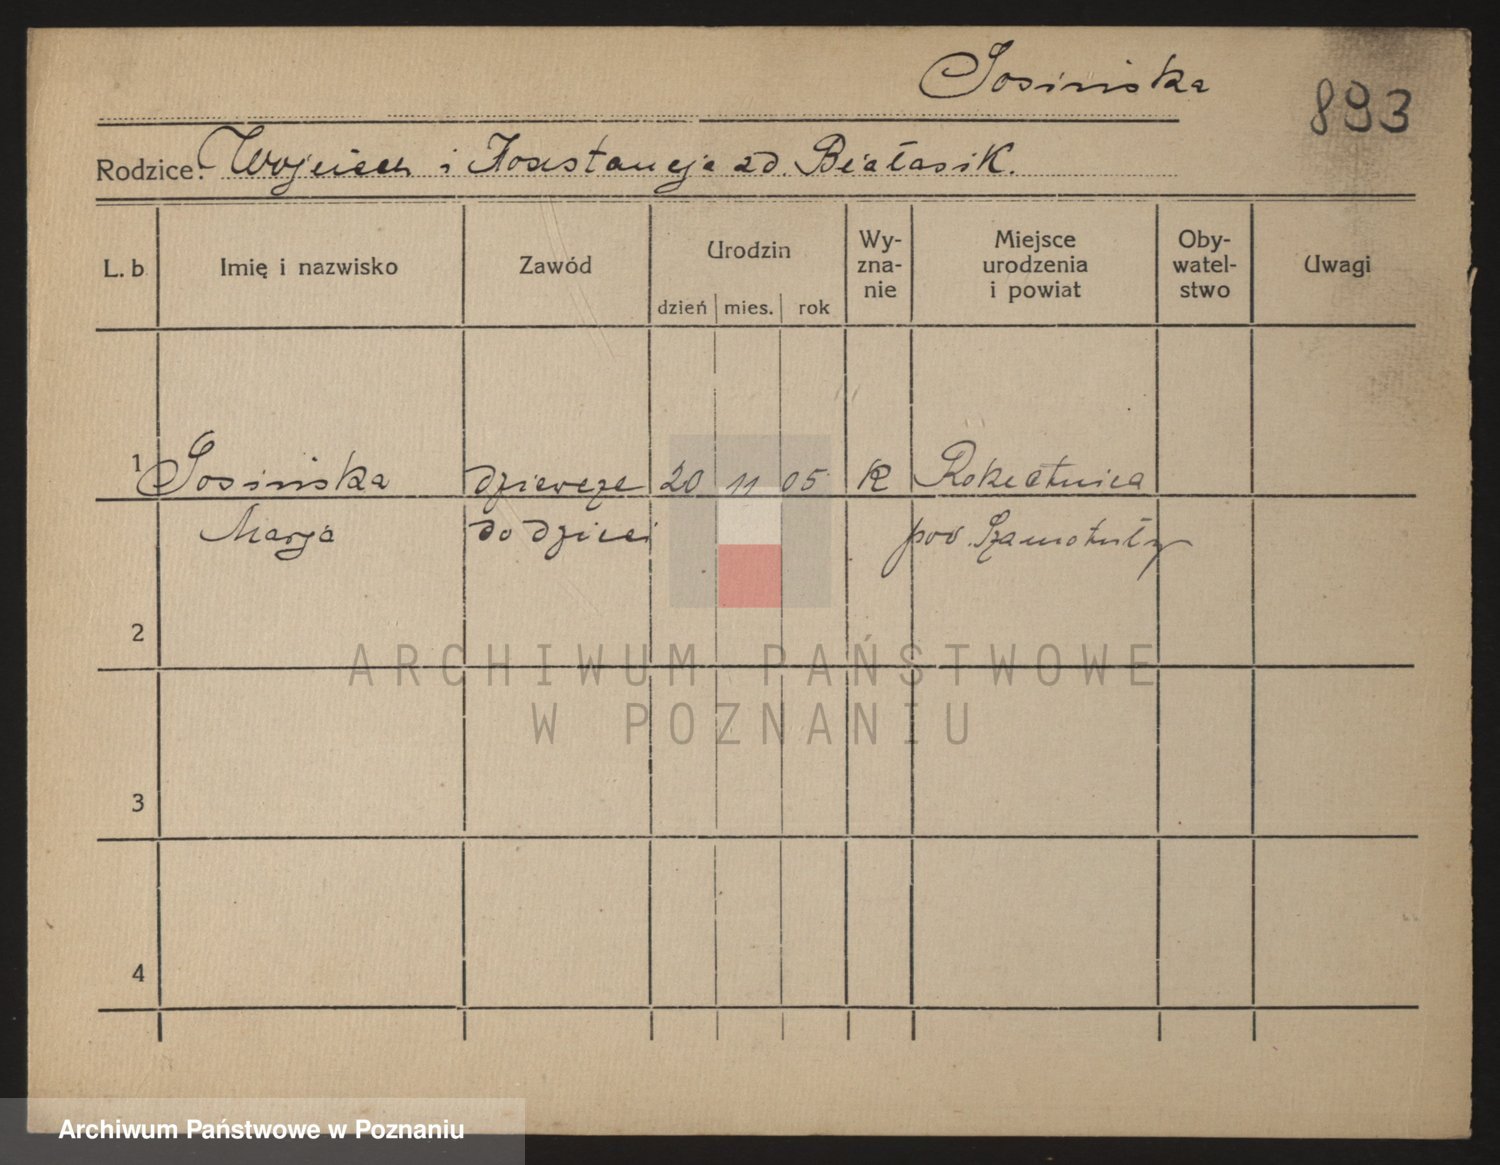 Sosińska
893
Rodzice: Wojciech i Konstancja zd. Białasik.
L. b Imię i nazwisko Zawód Urodzin dzień mies. rok Wy-zna-nie Miejsce urodzenia i powiat Oby-watel-stwo Uwagi
1 Sosińska dziewczę 20 11 05 k Rokietnica
Marja do dzieci pow. Szamotuły
2
ARCHIWUM PAŃSTWOWE
W POZNANIU
3
4
Archiwum Państwowe w Poznaniu